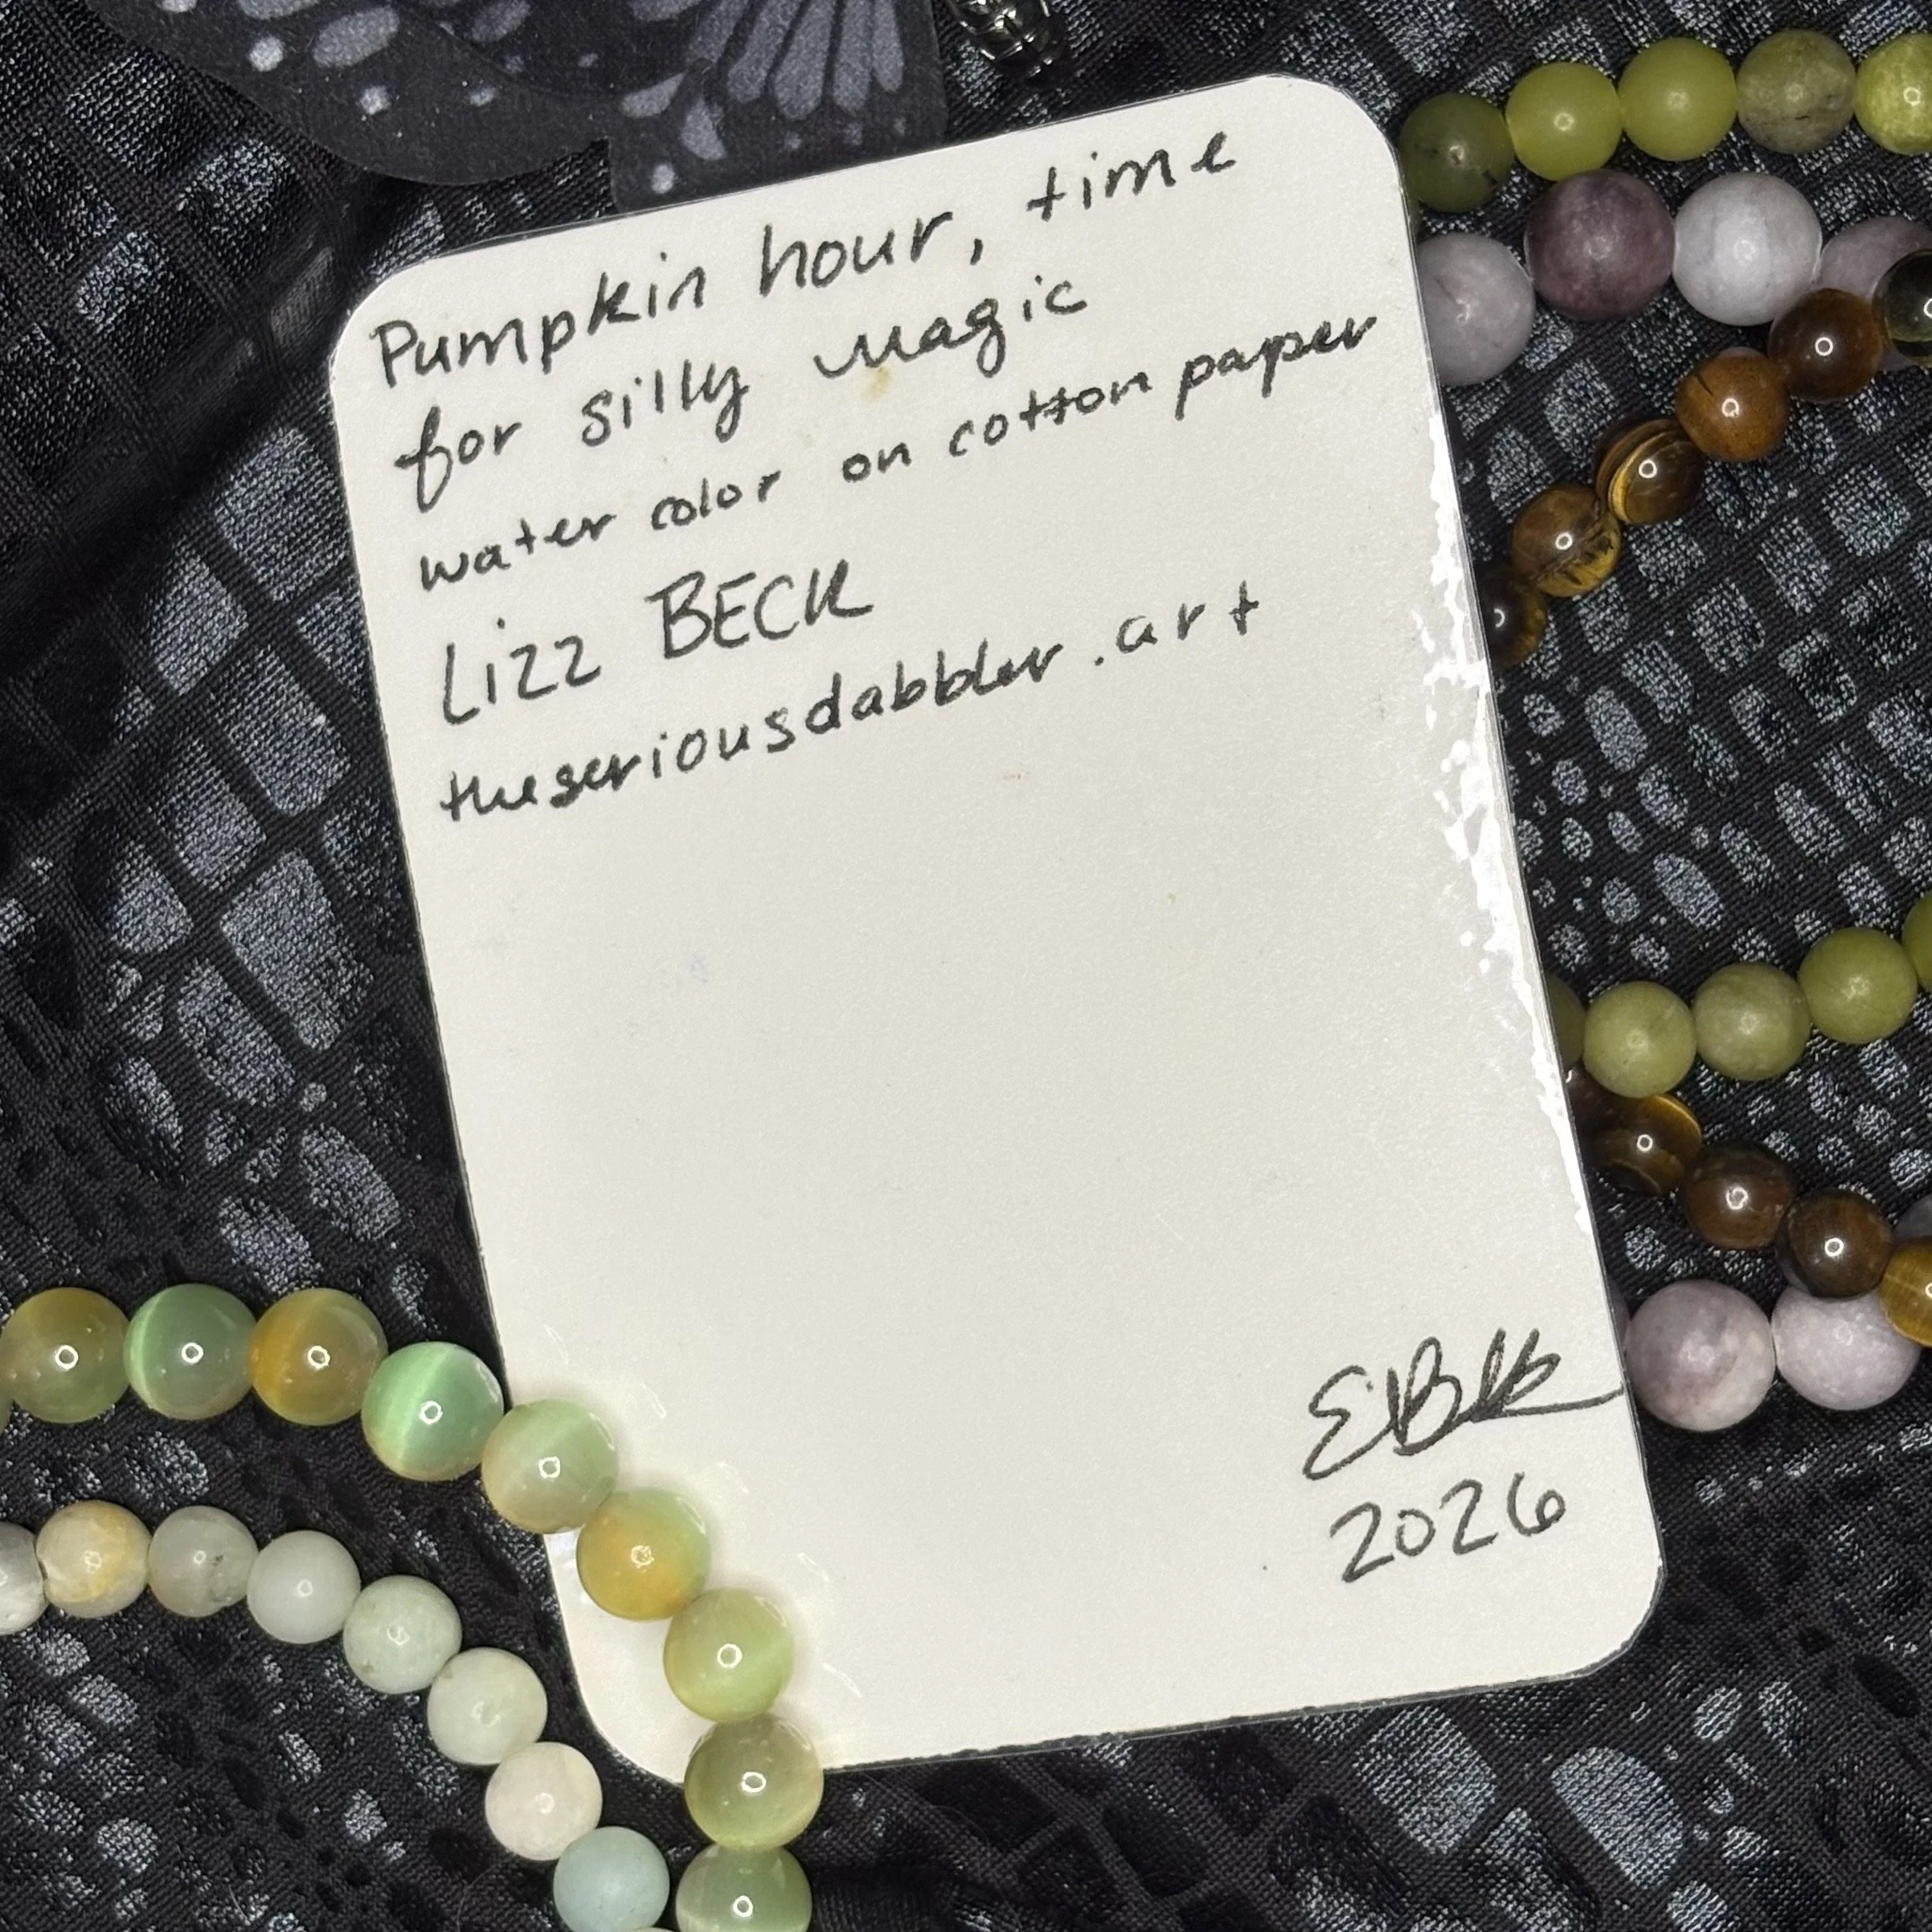 Pumpkin hour, time
for silly magic
water color on cotton paper
Lizz BECK
theseriousdabbler.art
2026